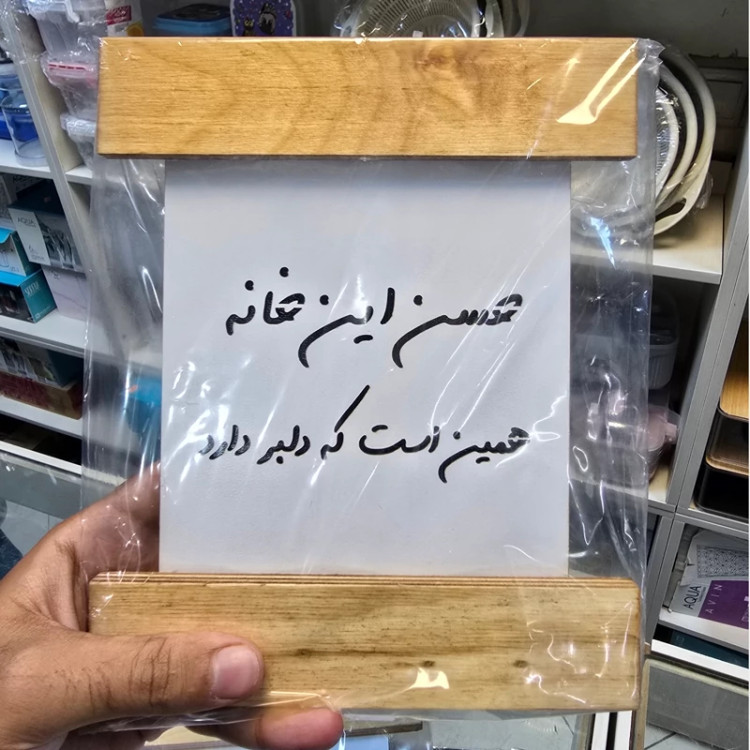 حسن این خانه
همین است که دلبر دارد
AQUA
AVIN